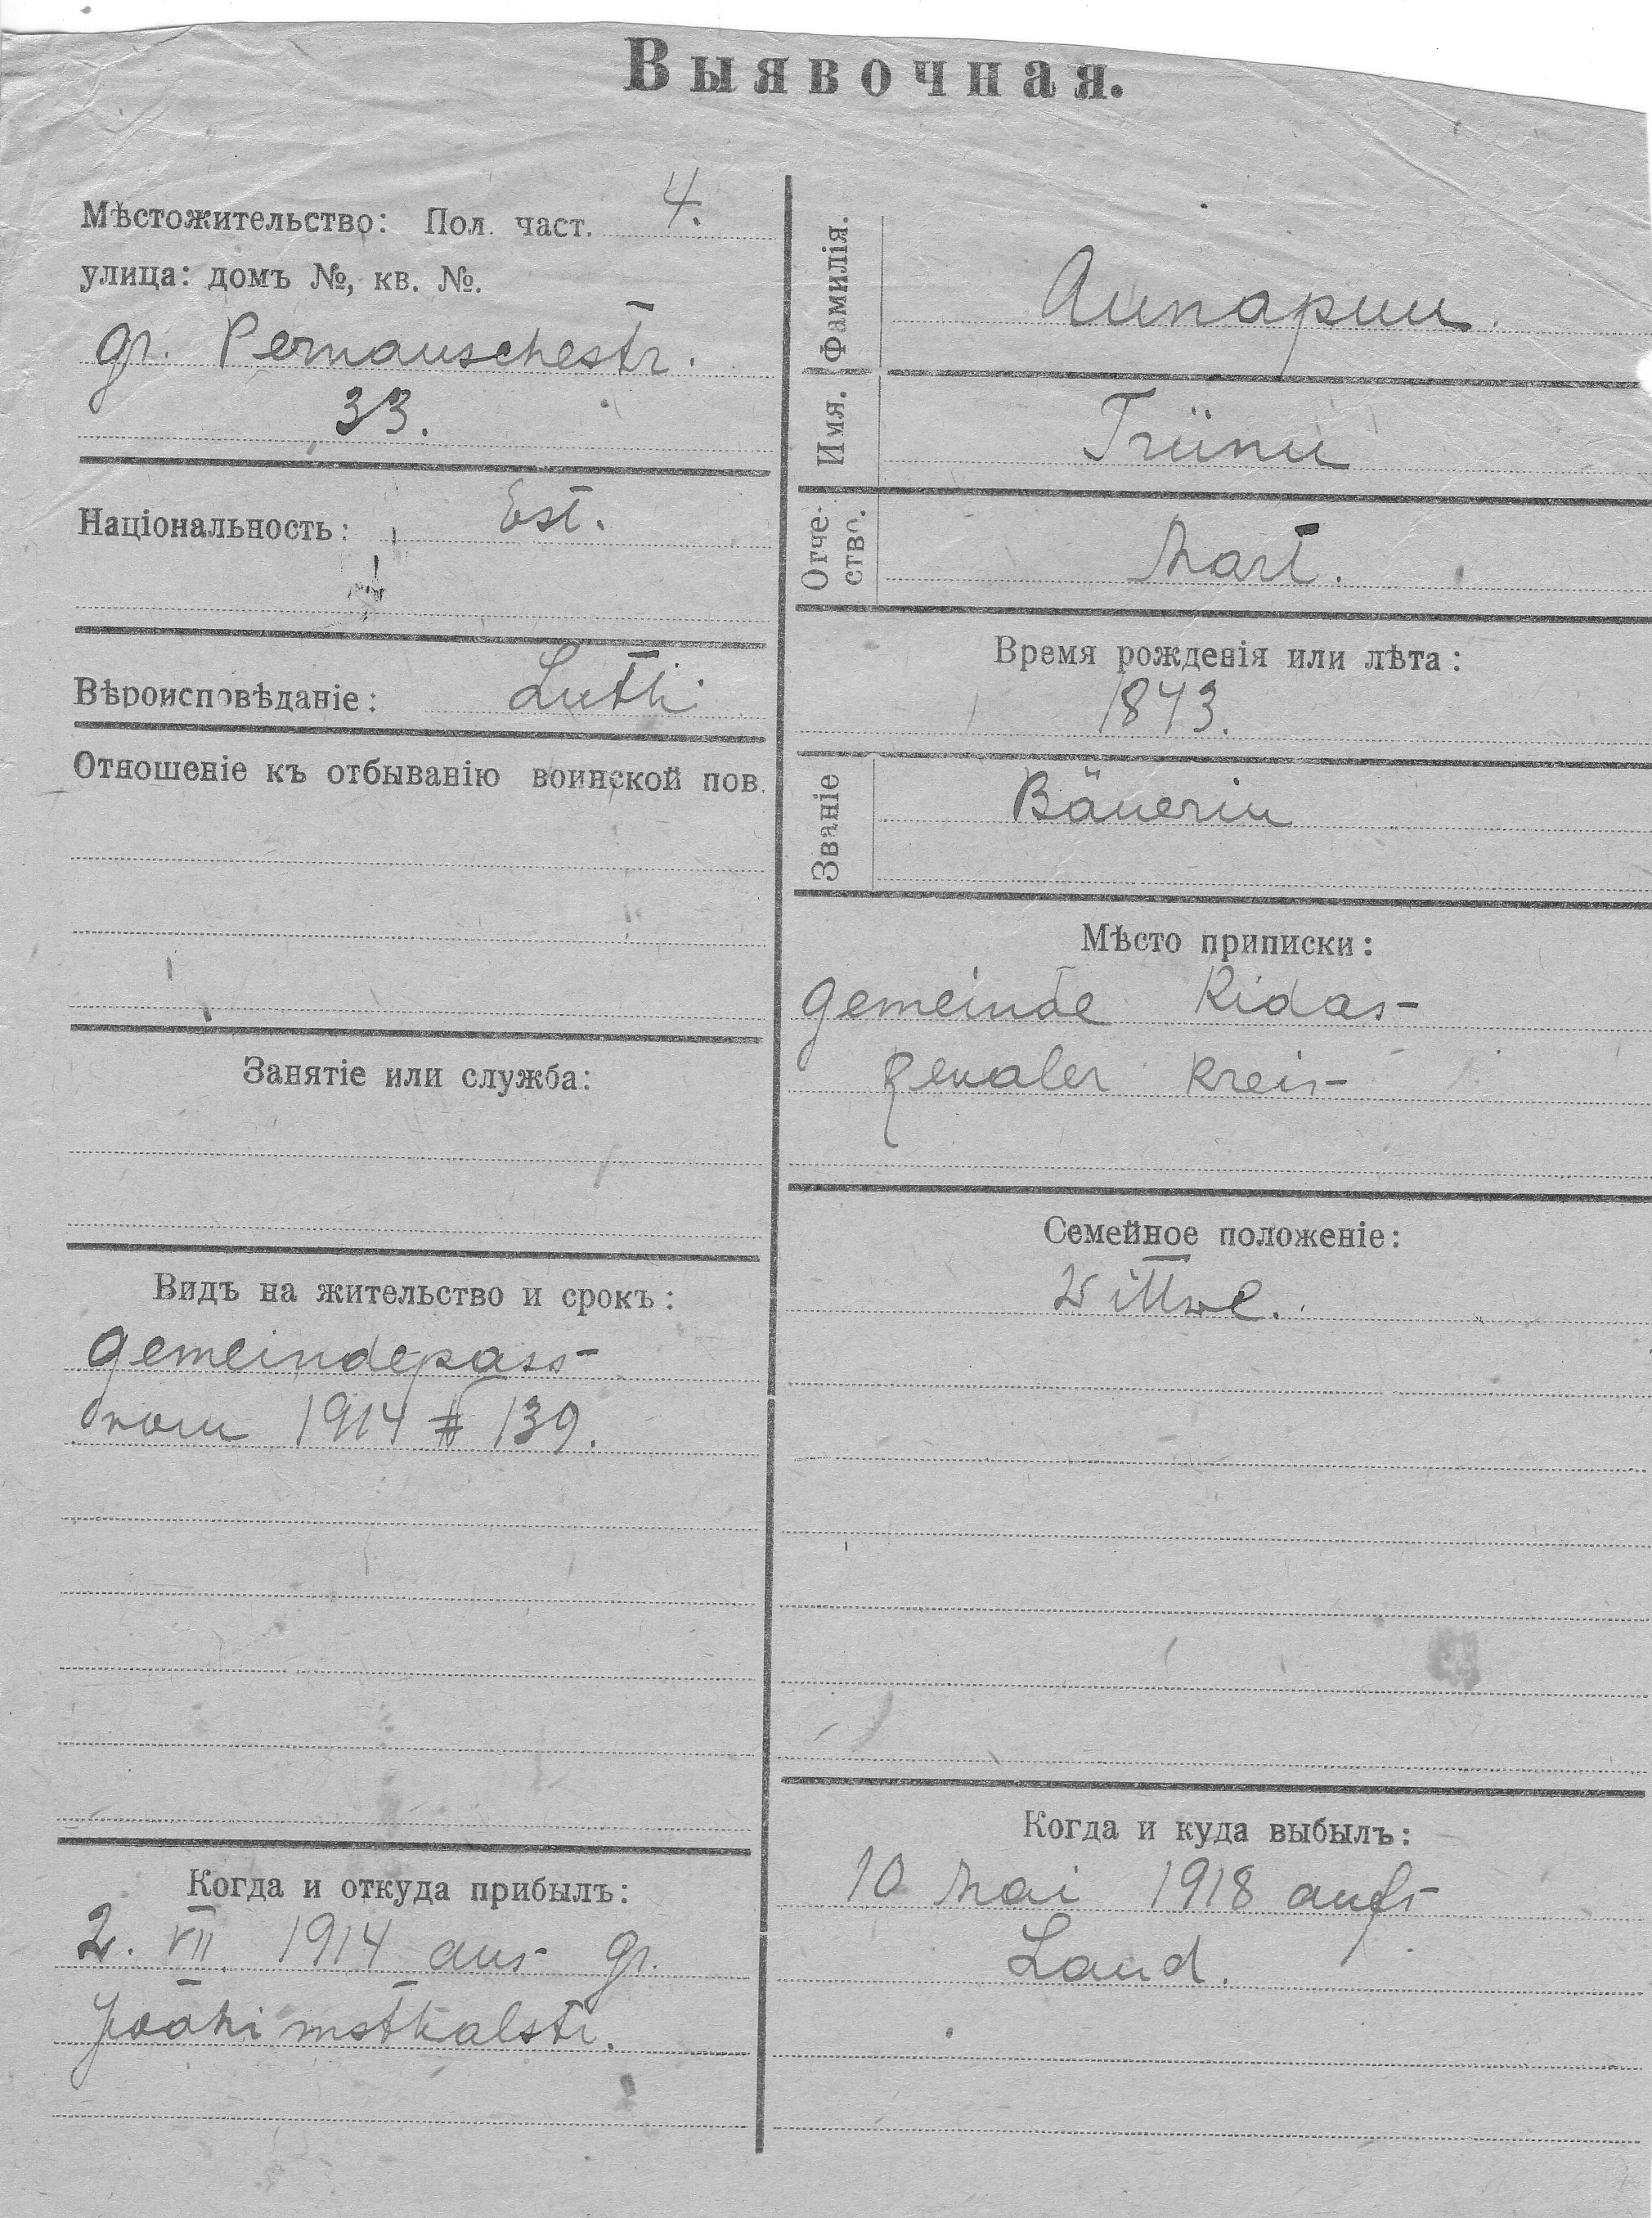 Выявочная.
Мѣстожительство: Пол. част. 4.
улица: домъ №, кв. №.
gr. Pernauschestr.
33.
Національность: Est.
Вѣроисповѣданіе: Luth.
Отношеніе къ отбыванію воинской пов.
Занятіе или служба:
Видъ на жительство и срокъ:
Gemeindepass
vom 1914 № 139.
Когда и откуда прибылъ:
2. VII. 1914 aus gr.
Joahimsthalstr.
Фамилія.
Имя. Triinu
Отче-
ство. Mart.
Время рожденія или лѣта:
1843.
Званіе Bäuerin
Мѣсто приписки:
Gemeinde Kidas
Revaler Kreis
Семейное положеніе:
Wittwe.
Когда и куда выбылъ:
10 Mai 1918 aufs
Land.